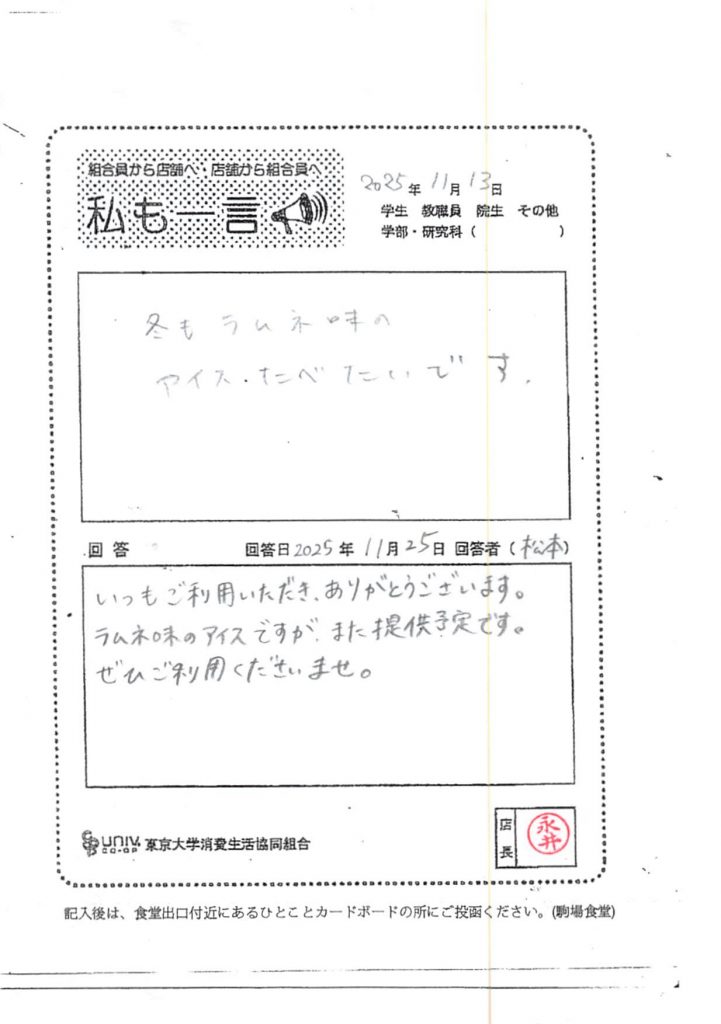 組合員から店舗へ・店舗から組合員へ
私も一言
2025年11月13日
学生 教職員 院生 その他
学部・研究科（ ）
冬もラムネ味の
アイス.たべたいです.
回答 回答日2025年11月25日 回答者（松本）
いつもご利用いただき、ありがとうございます。
ラムネ味のアイスですが、また提供予定です。
ぜひご利用くださいませ。
UNIV. CO-OP 東京大学消費生活協同組合
店長
永井
記入後は、食堂出口付近にあるひとことカードボードの所にご投函ください。(駒場食堂)